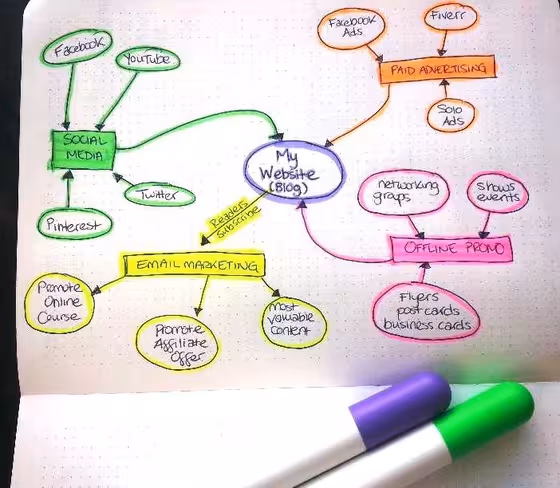 Facebook
YouTube
SOCIAL
MEDIA
Pinterest
Twitter
Facebook
Ads
Fiverr
PAID ADVERTISING
Solo
Ads
My
Website
(Blog)
networking
groups
shows
events
OFFLINE PROMO
Flyers
post cards
business cards
Readers
Subscribe
EMAIL MARKETING
Promote
Online
Course
Promote
Affiliate
Offer
most
valuable
content